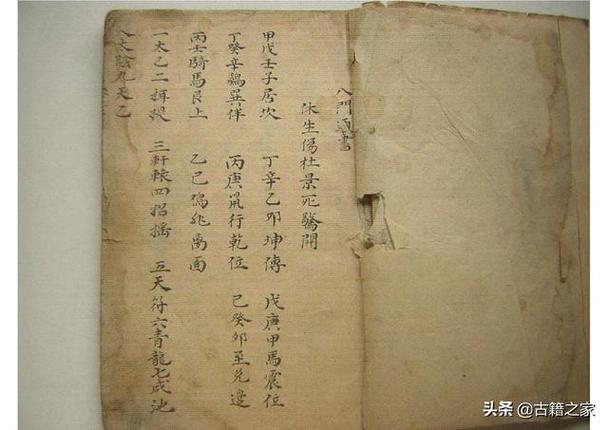 八門書
休生傷杜景死驚開
甲戊壬子居坎 丁辛乙卯坤傳 戊庚甲馬震位
丁癸辛鷄巽伴 丙庚鼠行乾位 己癸卯至兌邊
丙壬騎馬艮上 乙巳鷄飛离面
一太乙二攝提 三軒轅四招搖 五天符六青龍七咸池
八太陰九天乙
头条 @古籍之家